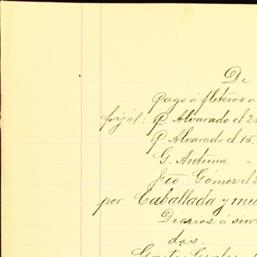 De
Pago á fleteros
frijol: P. Alvarado el 2
P. Alvarado el 15.
G. Antuna
Fco. Gómez el
por Caballada y mu
Diarios á
das.